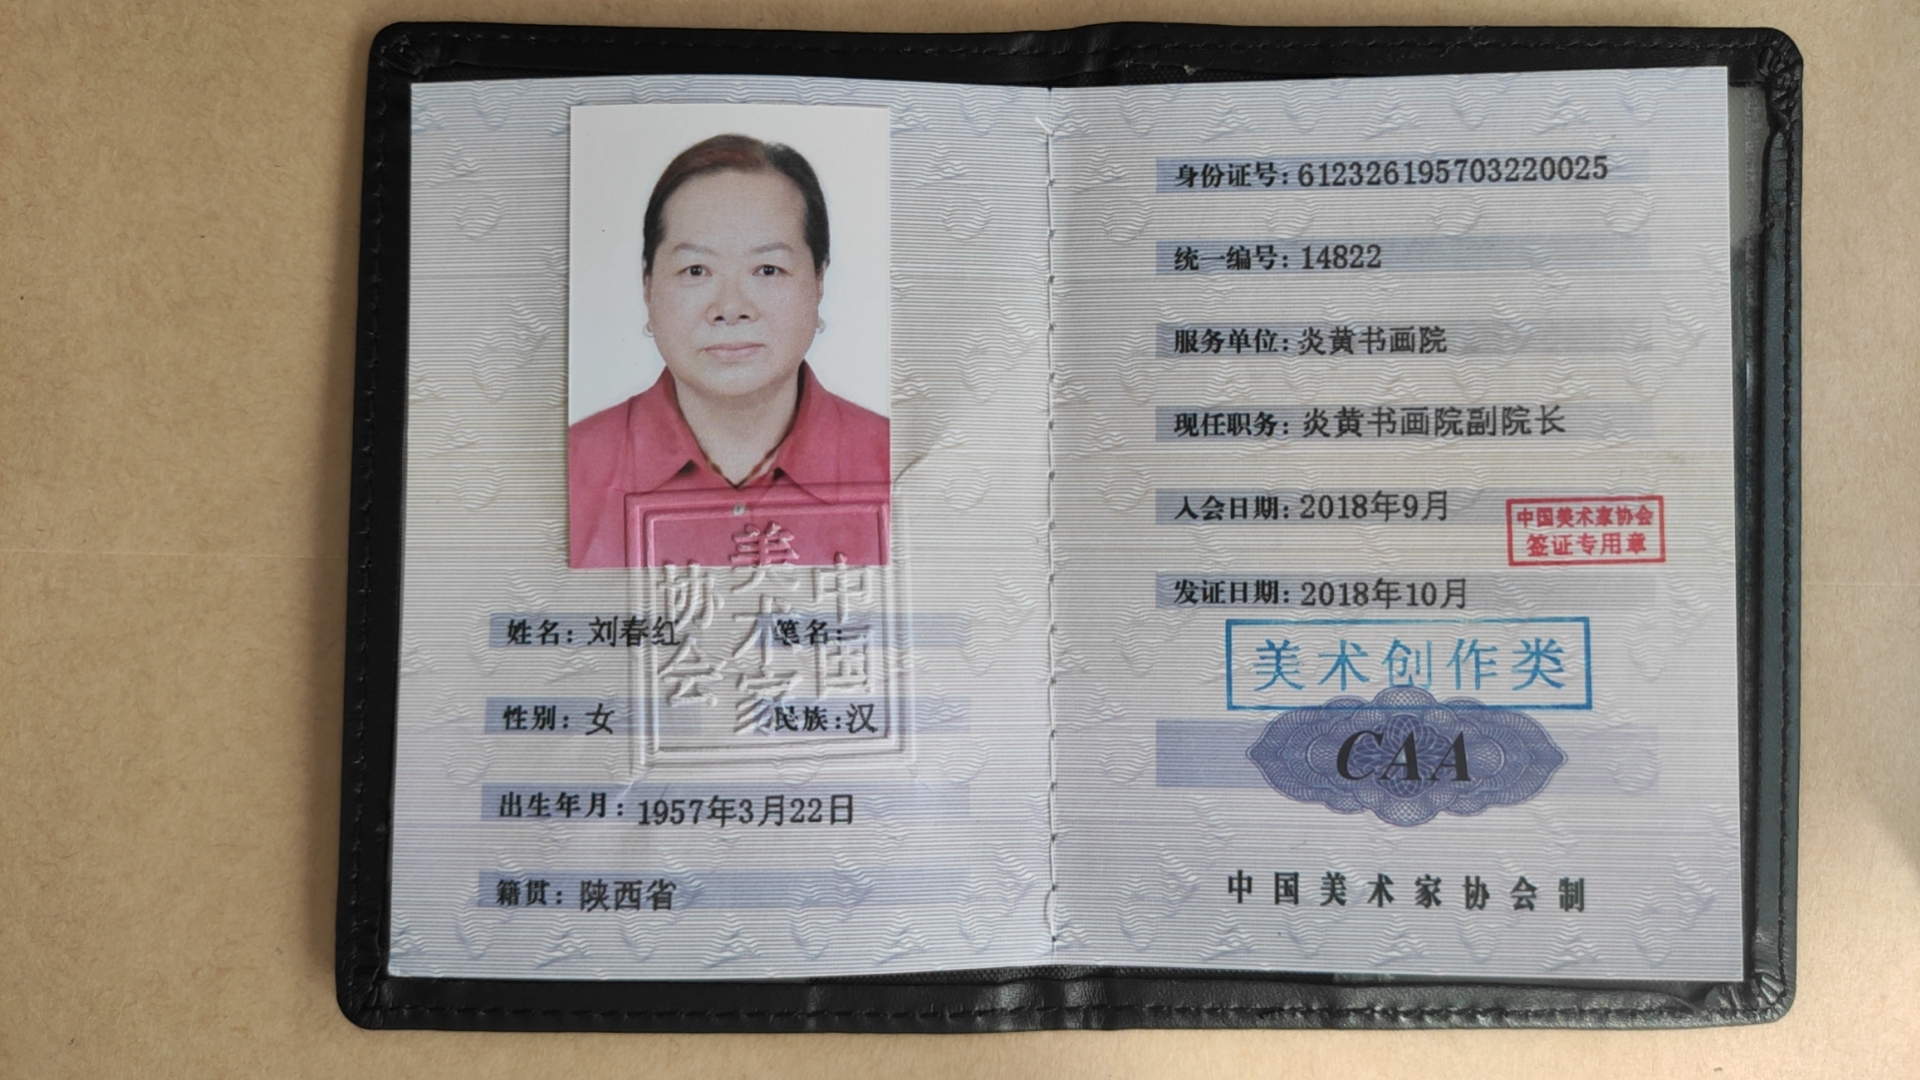 美术家
中国
协会
姓名：刘春红 笔名：
性别：女 民族：汉
出生年月：1957年3月22日
籍贯：陕西省
身份证号：612326195703220025
统一编号：14822
服务单位：炎黄书画院
现任职务：炎黄书画院副院长
入会日期：2018年9月
中国美术家协会
签证专用章
发证日期：2018年10月
美术创作类
CAA
中国美术家协会制